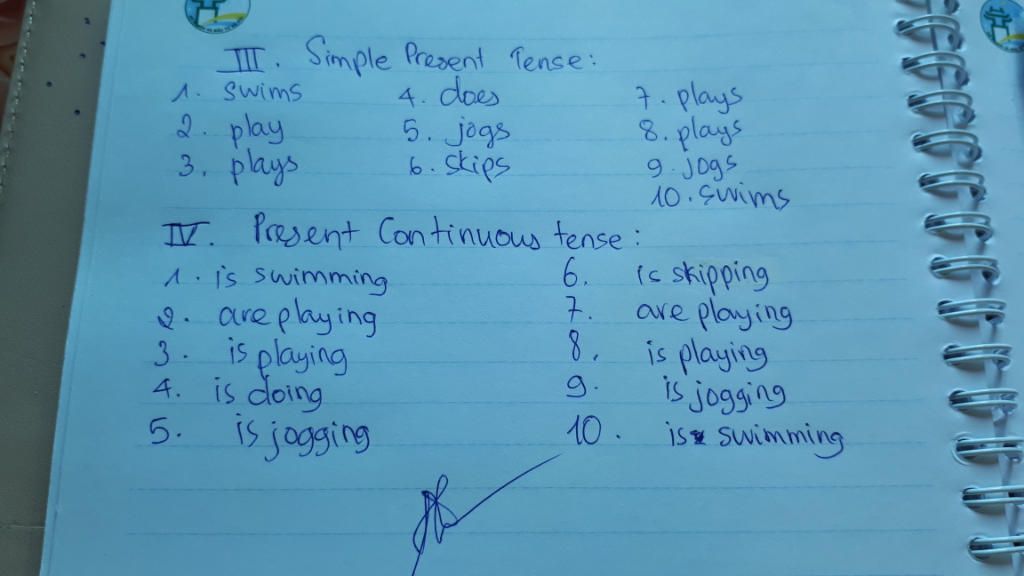 III. Simple Present Tense:
1. swims 4. does 7. plays
2. play 5. jogs 8. plays
3. plays 6. skips 9. jogs
10. swims
IV. Present Continuous tense:
1. is swimming 6. is skipping
2. are playing 7. are playing
3. is playing 8. is playing
4. is doing 9. is jogging
5. is jogging 10. is swimming